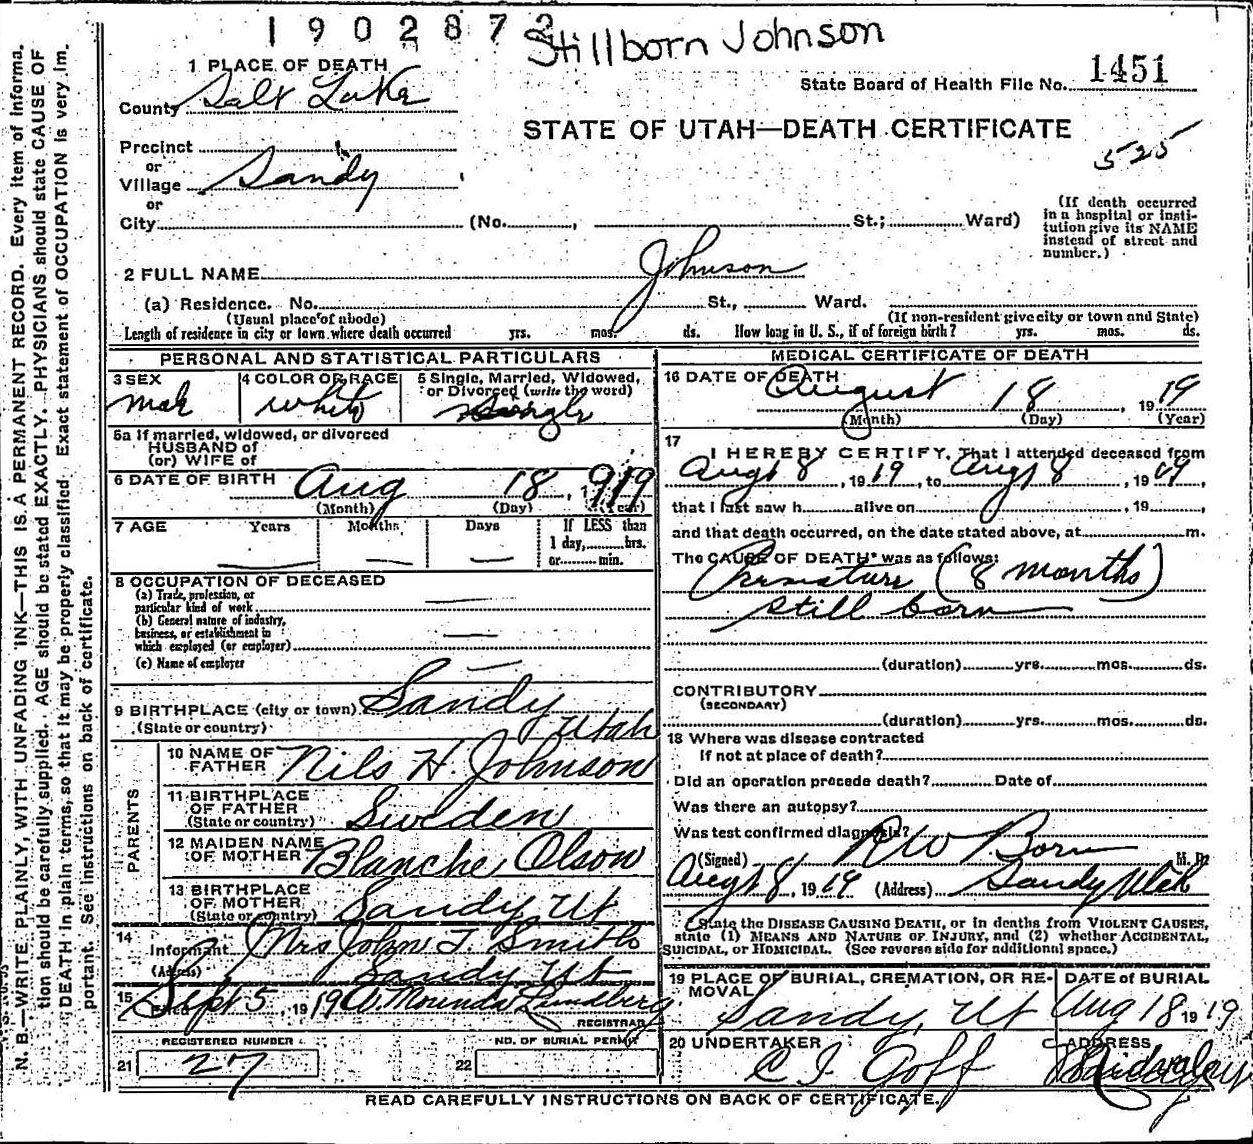 1902872
Stillborn Johnson
1 PLACE OF DEATH
State Board of Health File No. 1451
County Salt Lake
STATE OF UTAH—DEATH CERTIFICATE
525
Precinct
or
Village Sandy
or
City (No. , St.; Ward)
(If death occurred
in a hospital or insti-
tution give its NAME
instead of street and
number.)
2 FULL NAME Johnson
(a) Residence. No. St., Ward.
(Usual place of abode) (If non-resident give city or town and State)
Length of residence in city or town where death occurred yrs. mos. ds. How long in U. S., if of foreign birth? yrs. mos. ds.
PERSONAL AND STATISTICAL PARTICULARS
3 SEX 4 COLOR OR RACE 5 Single, Married, Widowed,
or Divorced (write the word)
male white single
5a If married, widowed, or divorced
HUSBAND of
(or) WIFE of
6 DATE OF BIRTH Aug 18, 1919
(Month) (Day) (Year)
7 AGE Years Months Days If LESS than
1 day, hrs.
or min.
8 OCCUPATION OF DECEASED
(a) Trade, profession, or
particular kind of work
(b) General nature of industry,
business, or establishment in
which employed (or employer)
(c) Name of employer
9 BIRTHPLACE (city or town) Sandy
(State or country) Utah
PARENTS
10 NAME OF
FATHER Nils H. Johnson
11 BIRTHPLACE
OF FATHER
(State or country) Sweden
12 MAIDEN NAME
OF MOTHER Blanche Olson
13 BIRTHPLACE
OF MOTHER
(State or country) Sandy Ut
14
Informant Mrs John T. Smith
(Address) Sandy Ut
15 Filed Sept 5, 1919 Lundberg
REGISTRAR
REGISTERED NUMBER
21 27
NO. OF BURIAL PERMIT
22
MEDICAL CERTIFICATE OF DEATH
16 DATE OF DEATH
August 18, 1919
(Month) (Day) (Year)
17
I HEREBY CERTIFY, That I attended deceased from
Aug 18, 1919, to Aug 18, 1919,
that I last saw h alive on , 19 ,
and that death occurred, on the date stated above, at m.
The CAUSE OF DEATH* was as follows:
Premature (8 months)
still born
(duration) yrs. mos. ds.
CONTRIBUTORY
(SECONDARY)
(duration) yrs. mos. ds.
18 Where was disease contracted
if not at place of death?
Did an operation precede death? Date of
Was there an autopsy?
Was test confirmed diagnosis?
(Signed) R W Born M. D.
Aug 18, 1919 (Address) Sandy Utah
State the DISEASE CAUSING DEATH, or in deaths from VIOLENT CAUSES,
state (1) MEANS AND NATURE OF INJURY, and (2) whether ACCIDENTAL,
SUICIDAL, OR HOMICIDAL. (See reverse side for additional space.)
19 PLACE OF BURIAL, CREMATION, OR RE-
MOVAL Sandy, Ut
DATE of BURIAL
Aug 18 1919
20 UNDERTAKER
C I Goff
ADDRESS
Midvale
READ CAREFULLY INSTRUCTIONS ON BACK OF CERTIFICATE.
N. B.—WRITE PLAINLY, WITH UNFADING INK—THIS IS A PERMANENT RECORD. Every item of informa-
tion should be carefully supplied. AGE should be stated EXACTLY. PHYSICIANS should state CAUSE OF
DEATH in plain terms, so that it may be properly classified. Exact statement of OCCUPATION is very im-
portant. See instructions on back of certificate.